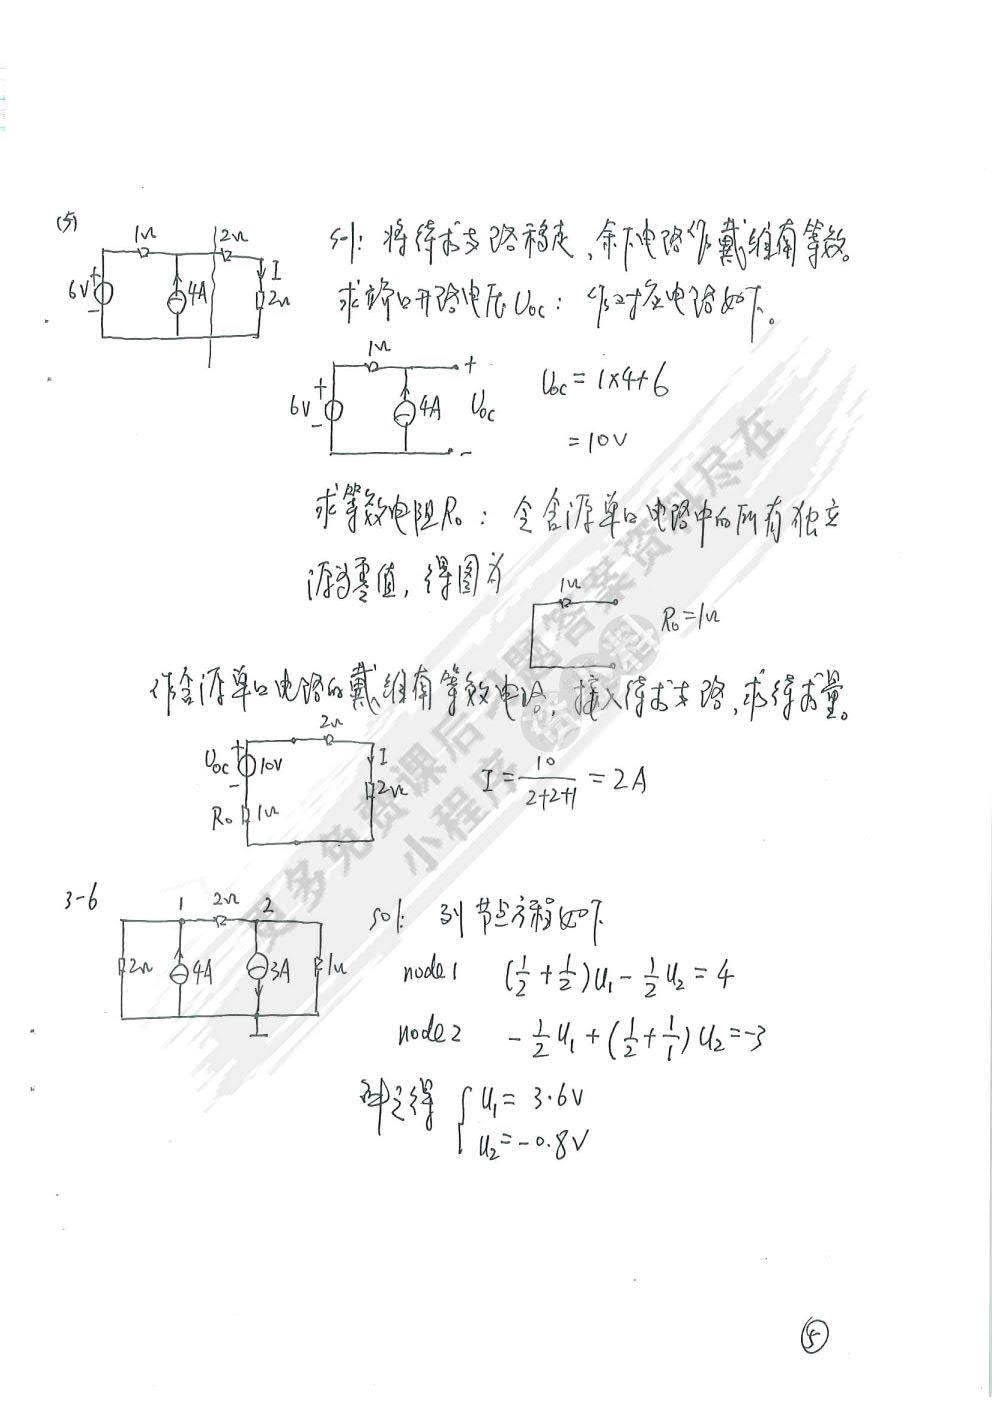 (5)
1Ω 2Ω
6V + - 4A I 2Ω
sol: 将待求支路移走,余下电路作戴维南等效。
求端口开路电压Uoc: 作对应电路如下。
1Ω
6V + - 4A + Uoc -
Uoc = 1×4+6
= 10V
求等效电阻R₀: 令含源单口电路中的所有独立
源为零值,得图为
1Ω
R₀=1Ω
作含源单口电路的戴维南等效电路,接入待求支路,求待求量。
2Ω
Uoc + - 10V I 2Ω
R₀ 1Ω
I = 10/(2+2+1) = 2A
3-6
1 2Ω 2
2Ω 4A 3A 1Ω
sol: 列节点方程如下
node1 (1/2 + 1/2)U₁ - 1/2 U₂ = 4
node2 - 1/2 U₁ + (1/2 + 1/1) U₂ = -3
解之得 { U₁ = 3.6V
U₂ = -0.8V
更多免费课后习题答案资料尽在
小程序
5